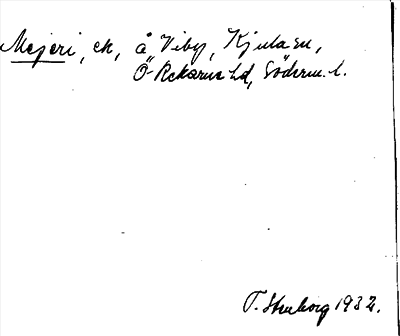 Mejeri, ek, å Viby, Kjula sn,
Ö-Rekarne hd, Söderm. l.
1932.